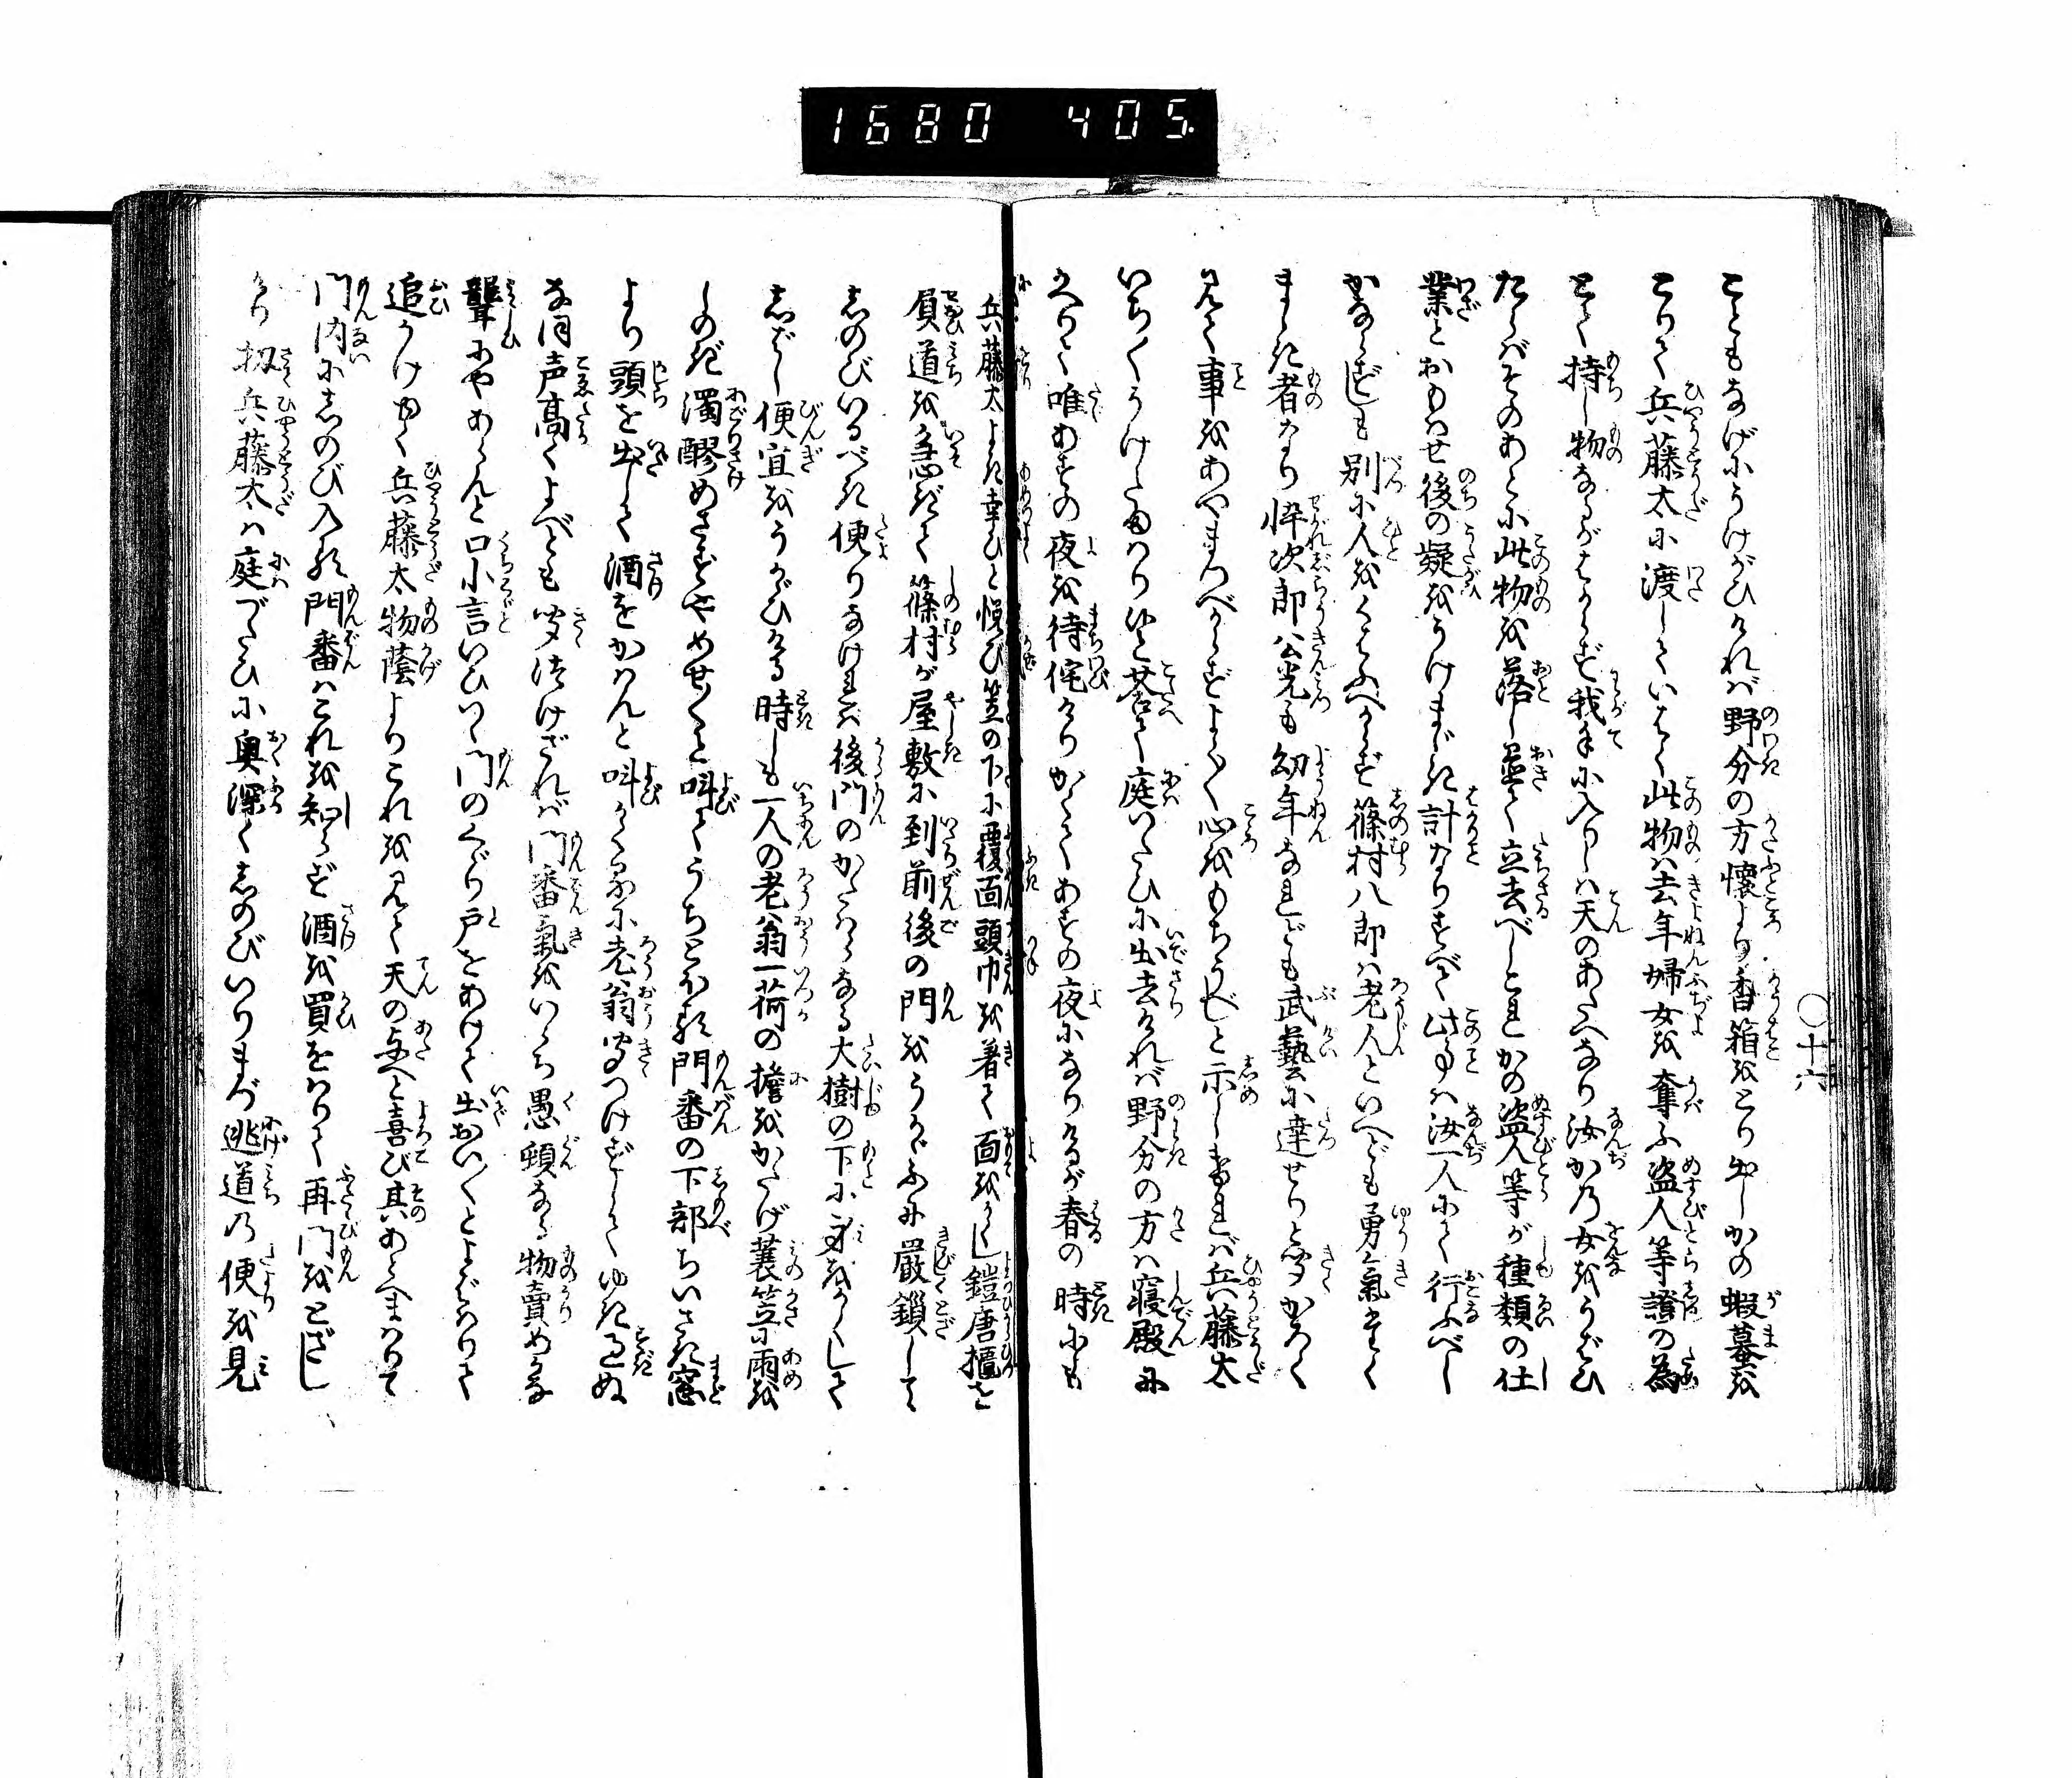 1680 405.
○十六
こともなげにうけがひければ野分の方懐より香箱をとり出しかの蝦蟇を
とりて兵藤太に渡していはく此物は去年婦女を奪ふ盗人等證の為
とて持し物なるがはからず我手に入りしは天のあたへなり汝かの女をうばひ
たらばそのあとに此物を落し置て立去べしこれかの盗人等が種類の仕
業とおもはせ後の疑をうけまじき計なりすべて此事は汝一人にて行ふべし
かならずしも別に人をくはふべからず篠村八郎は老人といへども勇氣たくく
ましき者なり悴次郎公光も幼年なれども武藝に達せりと聞かろく
見て事をあやまつべからずよくよく心をもちうべしと示しければ兵藤太
いちくうけたまはりぬと荅て庭づたひに出去ければ野分の方は寝殿に
かへりて唯あすの夜を待侘けりかくてあすの夜になりけるが春の時にも
兵藤太よき幸ひと悦び笠の下に覆面頭巾を着て面をかくし鎧唐櫃を
負道を急ぎて篠村が屋敷に到前後の門をうかゞふに嚴鎖して
しのびいるべき便りなければ後門のかたはらなる大樹の下に身をかくして
しばし便宜をうかゞひける時しも一人の老翁一荷の擔をかたげ蓑笠に雨を
しのぎ濁醪めさずやめせくと呌てうちとほる門番の下部ちいさき窓
より頭を出して酒をかはんと呌かくるに老翁聞つけずしてゆき過ぬ
なほ声高くよべども聞つけざれば門番氣をいらち愚頓なる物賣めかな
聾にやあらんと口小言いひつゝ門のくゞり戸をあけて出おいくとよばはりて
追かけゆく兵藤太物蔭よりこれを見て天の与へと喜び其あとへまはりて
門内にしのび入る門番はこれを知らず酒を買をはりて再門をとざし
けり扨兵藤太は庭づたひに奥深くしのびいりまづ逃道の便を見